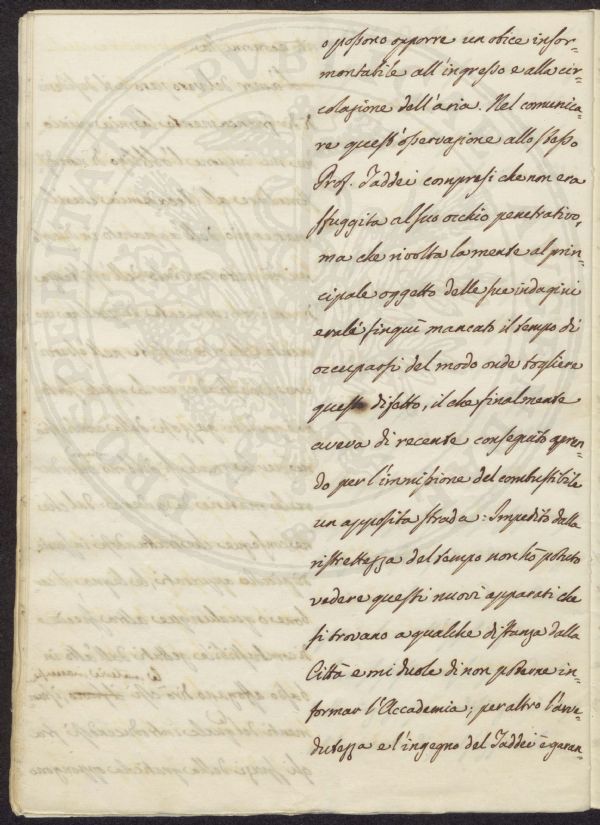 o possono opporre un obice insor-
montabile all'ingresso e alla cir-
colazione dell'aria. Nel comunica-
re quest'osservazione allo stesso
Prof. Taddei compresi che non era
sfuggita al suo occhio penetrativo,
ma che rivolta la mente al prin-
cipale oggetto delle sue indagini
eragli finquì mancato il tempo di
occuparsi del modo onde togliere
questo difetto, il che finalmente
aveva di recente conseguito apren-
do per l'immissione del combustibile
un apposita strada: Impedito dalla
ristrettezza del tempo non hò potuto
vedere questi nuovi apparati che
si trovano a qualche distanza dalla
Città e mi duole di non poterne in-
formar l'Accademia; per altro l'avve-
dutezza e l'ingegno del Taddei è garan-